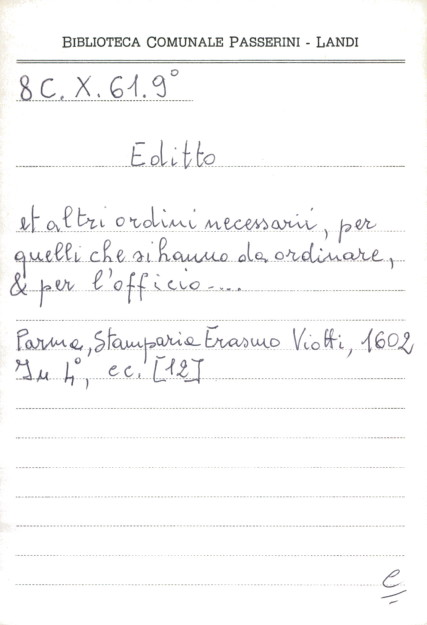 BIBLIOTECA COMUNALE PASSERINI - LANDI
8 C. X. 61. 9°
Editto
et altri ordini necessarii, per
quelli che si hanno da ordinare,
& per l'officio....
Parma, Stamparia Erasmo Viotti, 1602
In 4°, cc. [12]
e